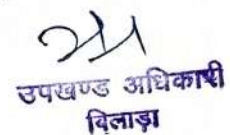 उपखण्ड अधिकारी
बिलाड़ा